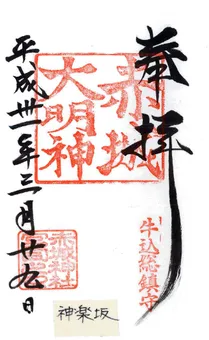 奉拝
牛込総鎮守
赤城
大明神
平成卅一年三月廿九日
赤城神社
神楽坂